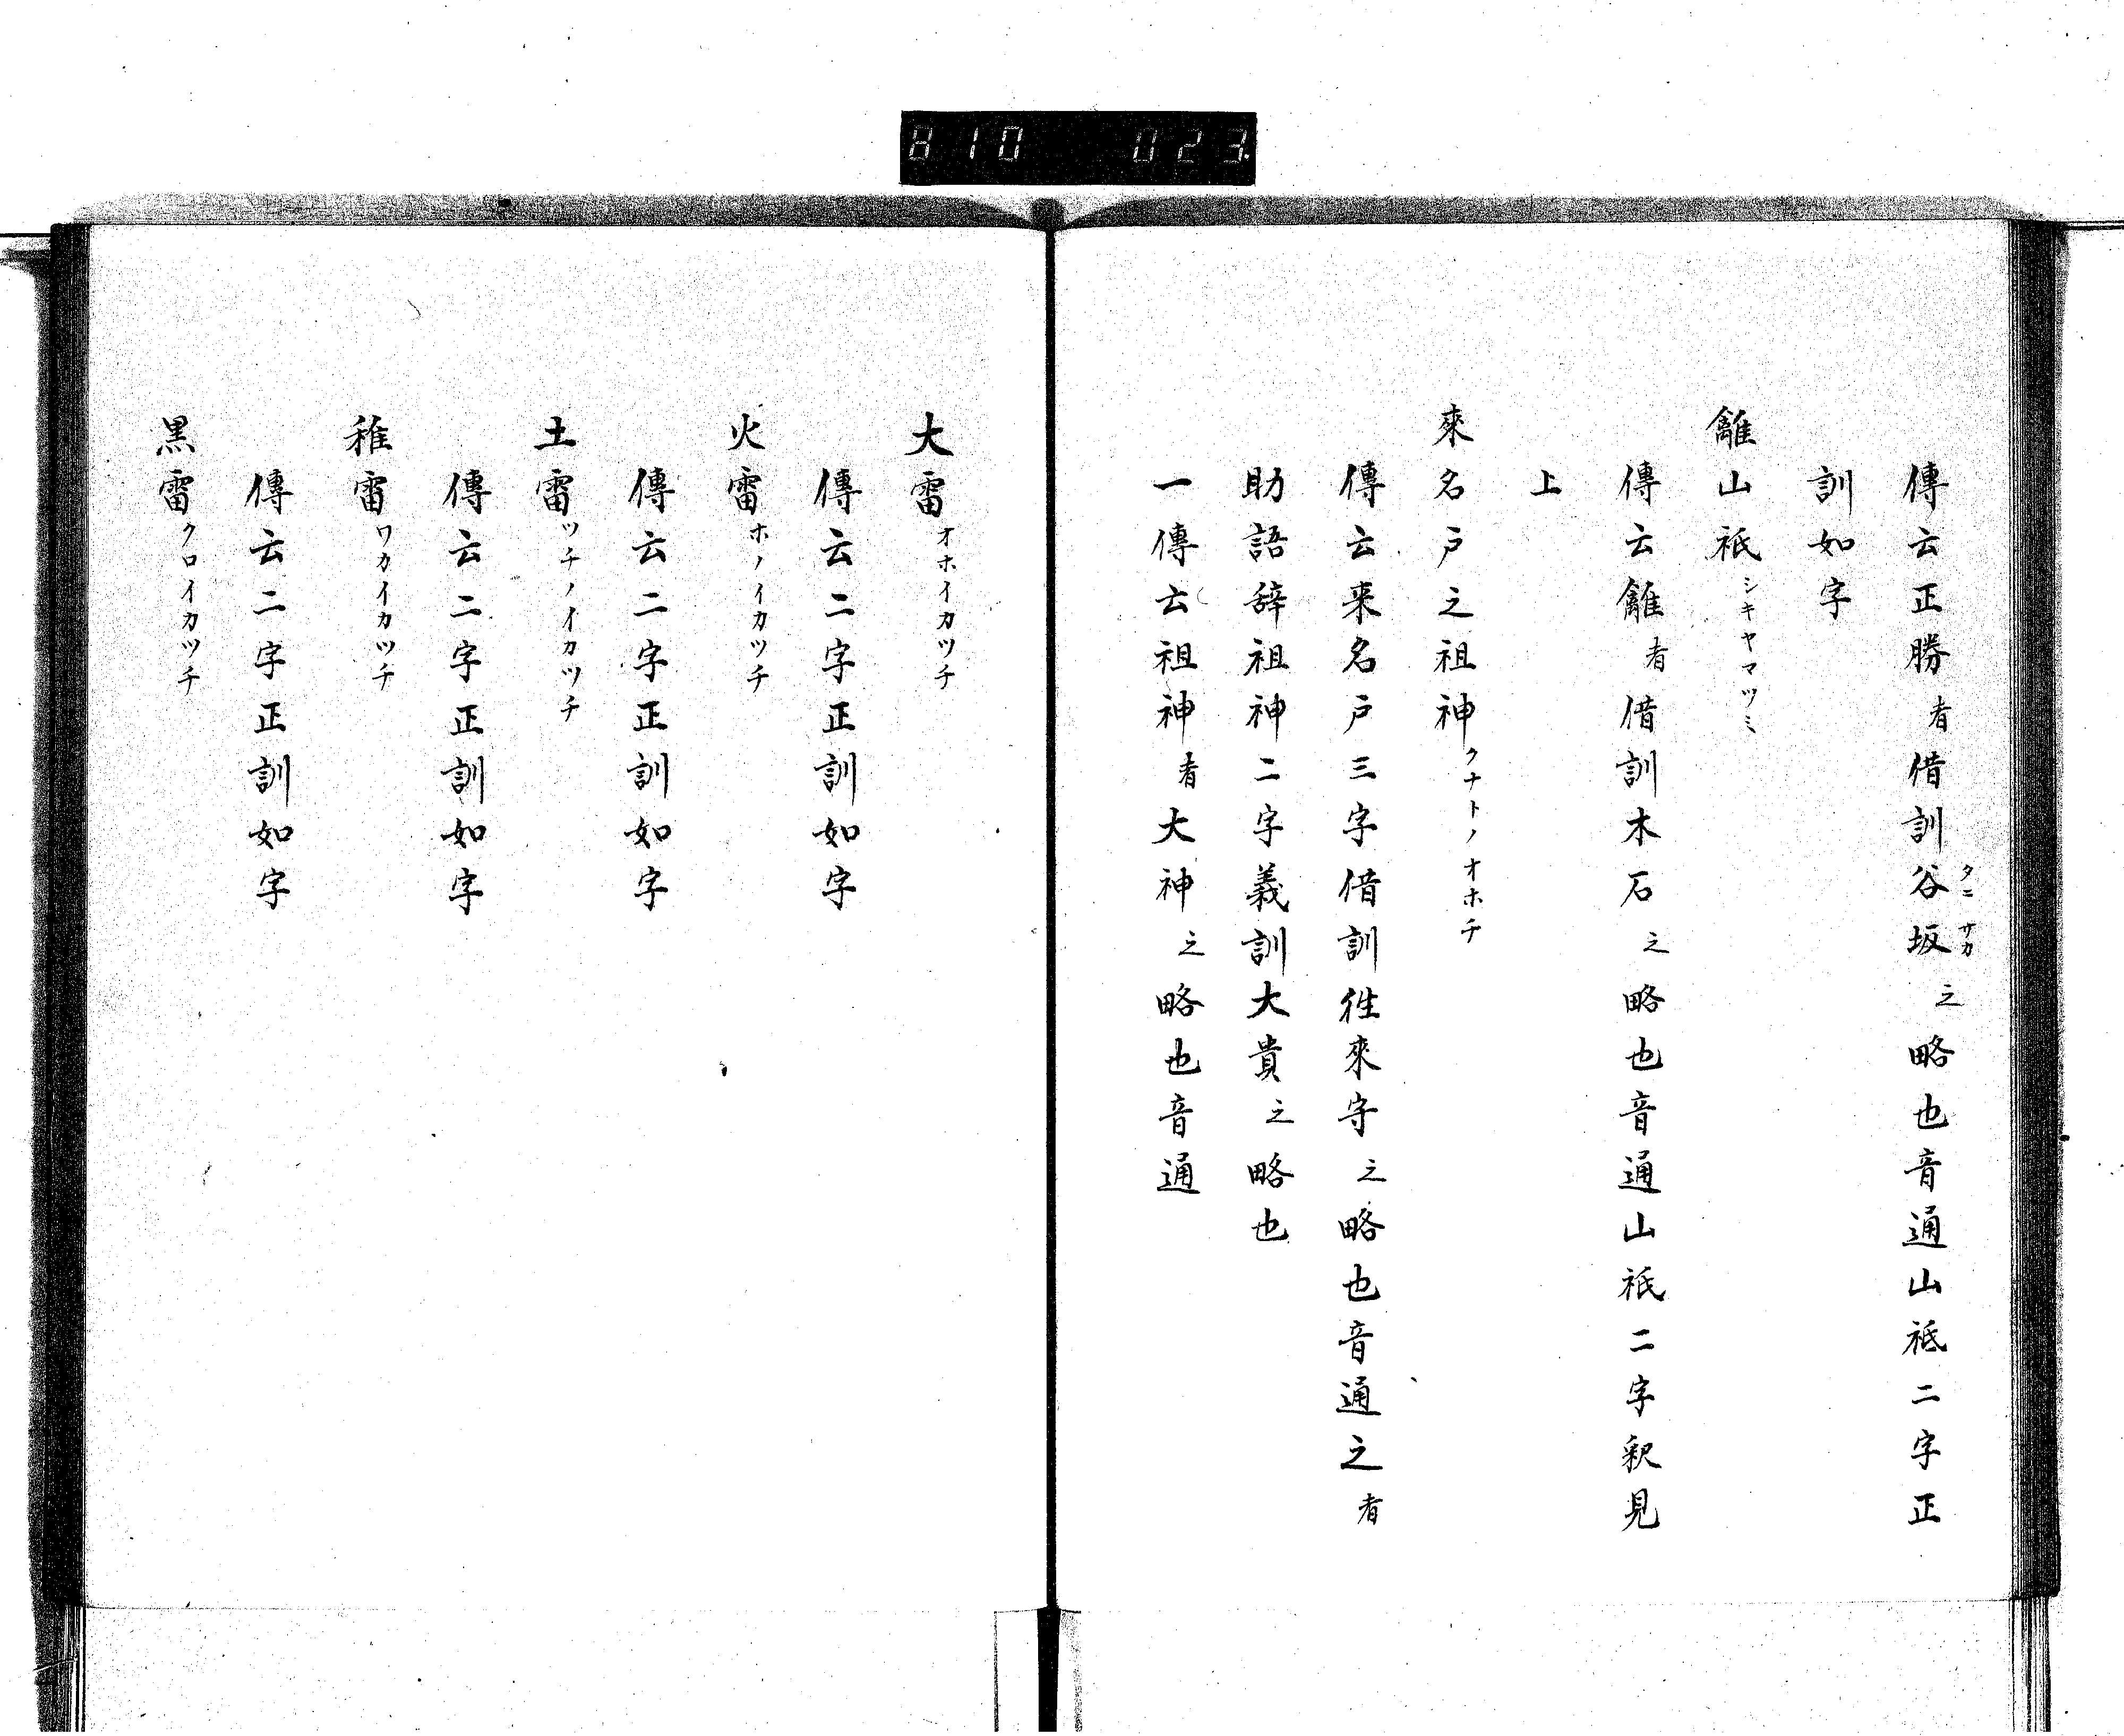 810 023.
傳云正勝者借訓谷坂之略也音通山祇二字正
タニサカ
訓如字
䨄山祇シキヤマツミ
傳云䨄者借訓木石之略也音通山祇二字釈見
上
來名戸之祖神クナトノオホチ
傳云来名戸三字借訓徃來守之略也音通之者
助語辞祖神二字義訓大貴之略也
一傳云祖神者大神之略也音通
大雷オホイカツチ
傳云二字正訓如字
火雷ホノイカツチ
傳云二字正訓如字
土雷ツチノイカツチ
傳云二字正訓如字
稚雷ワカイカツチ
傳云二字正訓如字
黒雷クロイカツチ